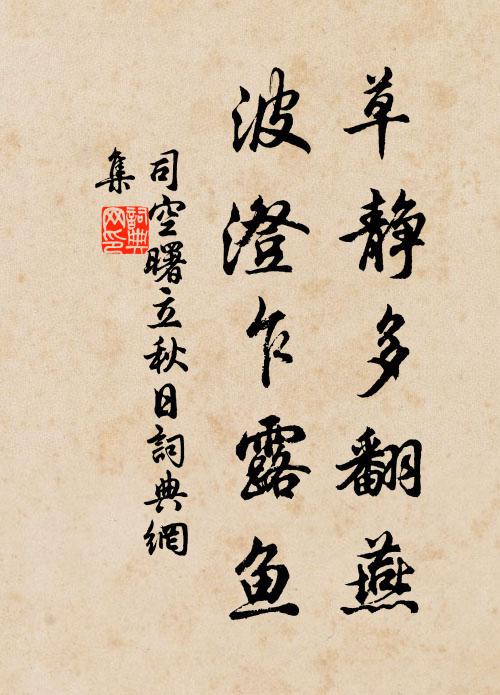 草静多翻燕
波澄乍露鱼
司空曙立秋日詞典網
集
詞典
网印